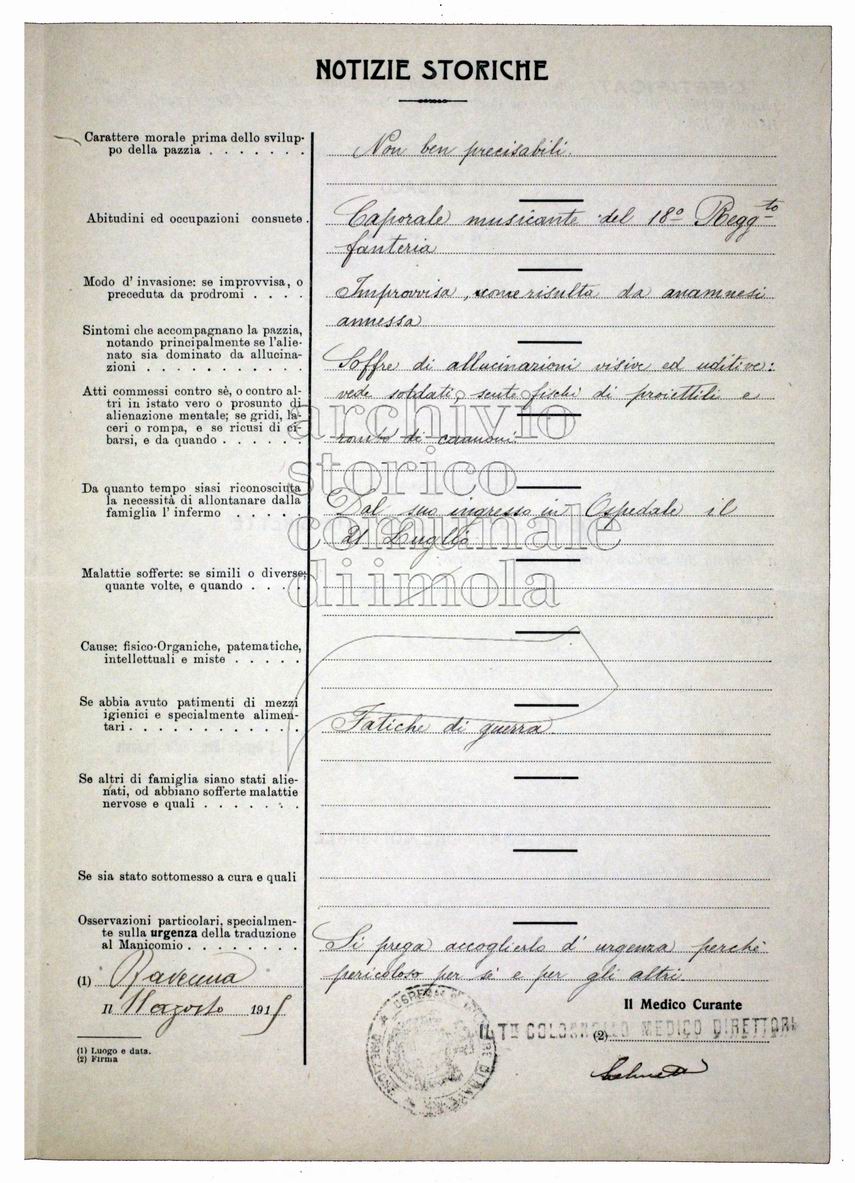 NOTIZIE STORICHE
Carattere morale prima dello svilup-
po della pazzia . . . . . . .
Non ben precisabili.
Abitudini ed occupazioni consuete .
Caporale musicante del 18º Reggto
fanteria
Modo d' invasione: se improvvisa, o
preceduta da prodromi . . . .
Improvvisa, come risulta da anamnesi
annessa
Sintomi che accompagnano la pazzia,
notando principalmente se l'alie-
nato sia dominato da allucina-
zioni . . . . . . . . . . .
Soffre di allucinazioni visive ed uditive:
vede soldati, sente fischi di proiettili e
rombo di cannoni.
Atti commessi contro sè, o contro al-
tri in istato vero o prosunto di
alienazione mentale; se gridi, la-
ceri o rompa, e se ricusi di ci-
barsi, e da quando . . . . . .
Da quanto tempo siasi riconosciuta
la necessità di allontanare dalla
famiglia l' infermo . . . . .
Dal suo ingresso in Ospedale il
21 Luglio
Malattie sofferte: se simili o diverse;
quante volte, e quando . . . .
Cause: fisico-Organiche, patematiche,
intellettuali e miste . . . . .
Se abbia avuto patimenti di mezzi
igienici e specialmente alimen-
tari . . . . . . . . . . . .
Fatiche di guerra.
Se altri di famiglia siano stati alie-
nati, od abbiano sofferte malattie
nervose e quali . . . . . . .
Se sia stato sottomesso a cura e quali
Osservazioni particolari, specialmen-
te sulla urgenza della traduzione
al Manicomio . . . . . . . .
Si prega accoglierlo d' urgenza perchè
pericoloso per sè e per gli altri
(1) Ravenna
Il 11 agosto 1915
Il Medico Curante
IL Tte COLONNELLO MEDICO DIRETTORE
(2)
(1) Luogo e data.
(2) Firma
archivio
storico
comunale
di imola